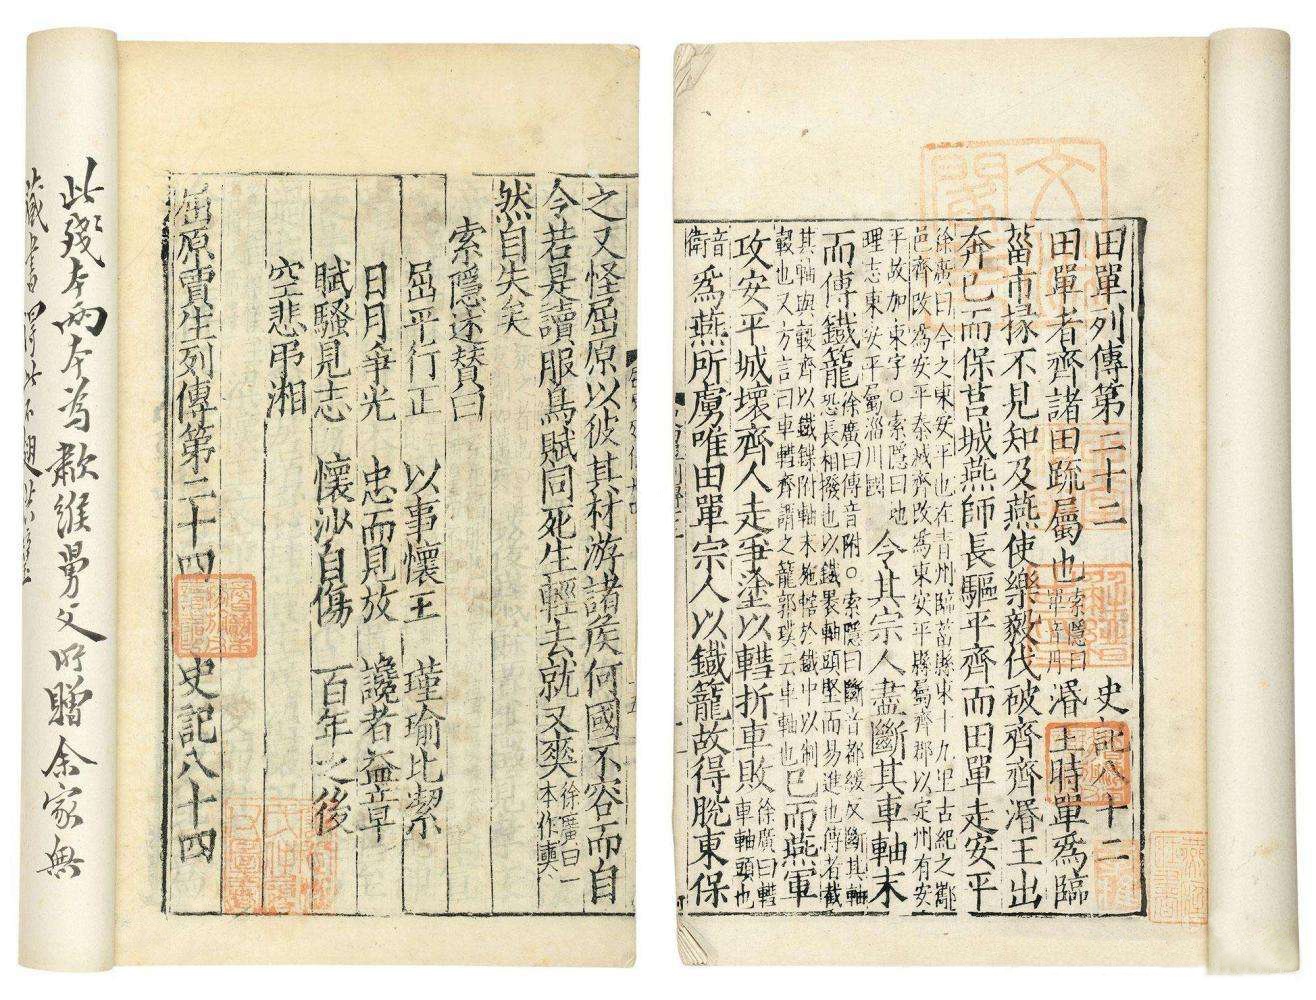 田單列傳第二十二 史記八十二
田單者齊諸田疏屬也索隱曰單音丹湣王時單爲臨
菑市掾不見知及燕使樂毅伐破齊齊湣王出
奔已而保莒城燕師長驅平齊而田單走安平
徐廣曰今之東安平也在青州臨菑縣東十九里古紀之酅
邑齊改爲安平秦滅齊改爲東安平縣屬齊郡以定州有安
平故加東字○索隱曰地
理志東安平屬淄川國令其宗人盡斷其車軸末
而傅鐵籠徐廣曰傅音附○索隱曰斷音都緩反斷其軸
恐長相撥也以鐵裹軸頭堅而易進也傅者截
其軸與轂齊以鐵鍱附軸末施轄於鐵中以制
轂也又方言曰車轊齊謂之籠郭璞云車軸也已而燕軍
攻安平城壞齊人走爭塗以轊折車敗徐廣曰轊車軸頭也
音衛爲燕所虜唯田單宗人以鐵籠故得脫東保
之又怪屈原以彼其材游諸侯何國不容而自
今若是讀服鳥賦同死生輕去就又爽徐廣曰一本作奭
然自失矣
索隱述贊曰
屈平行正 以事懷王 瑾瑜比潔
日月爭光 忠而見放 讒者益章
賦騷見志 懷沙自傷 百年之後
空悲弔湘
屈原賈生列傳第二十四 史記八十四
此殘本兩本為歙維父所贈余家無
藏書得此不翅